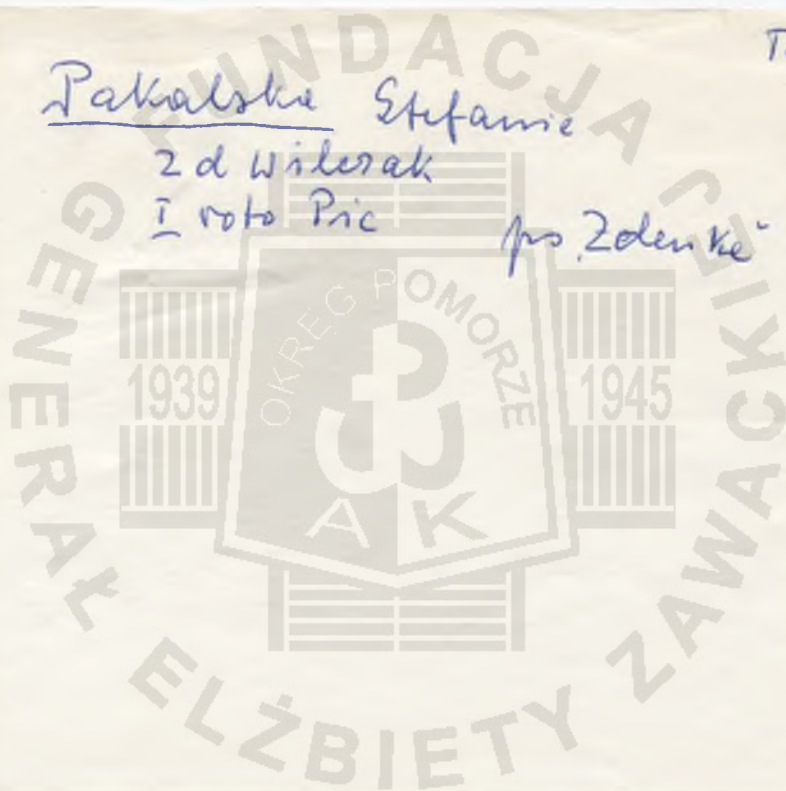 T
Pakalska Stefania
z d Wilczak
I voto Pic
ps. „Zdenka"
FUNDACJA GENERAŁ ELŻBIETY ZAWACKIEJ
OKRĘG POMORZE
1939
1945
AK